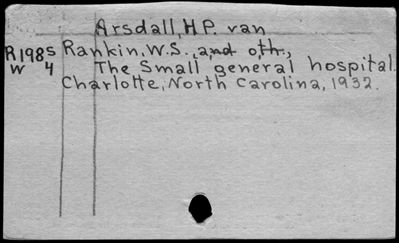 Arsdall, H.P. van
R198s Rankin, W.S., and oth.,
W 4 The Small general hospital.
Charlotte, North Carolina, 1932.